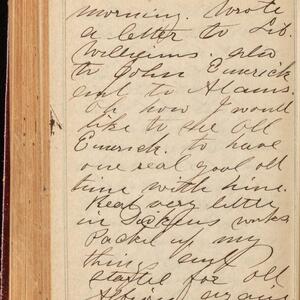 morning. Wrote
a letter to Lib.
Williams. also
to John Emerick
and to Adams.
Oh how I would
like to see Old
Emerick. to have
one real good old
time with him.
Read very little
in Dickens works
Packed up my
things and
started for old
Albion again